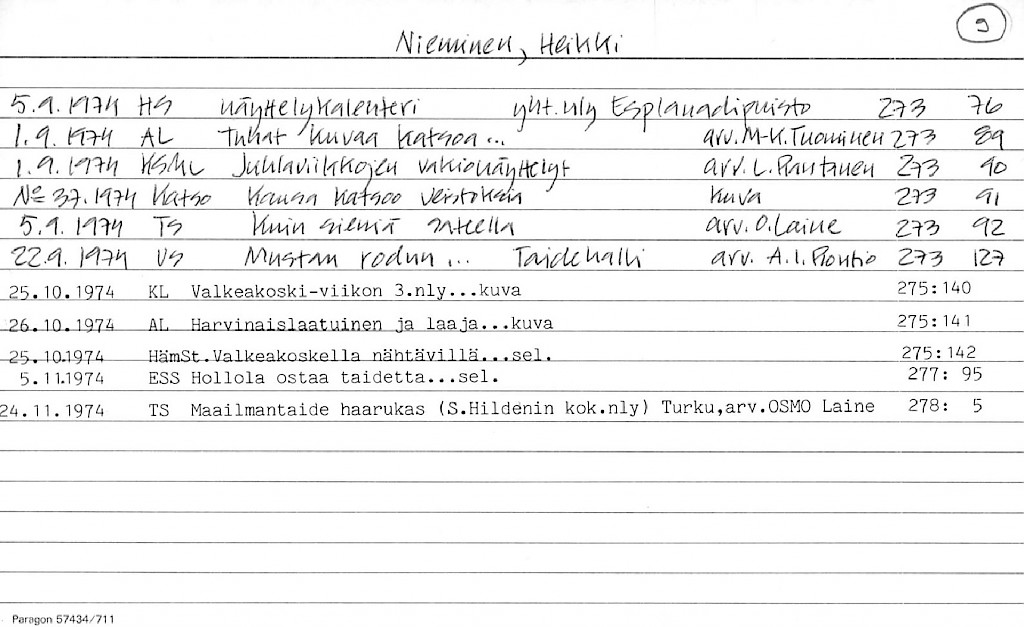 9
Nieminen, Heikki
5.9.1974 HS näyttelykalenteri yht.nly Esplanadipuisto 273 76
1.9.1974 AL Tuhat kuvaa katsoa... arv.M-K.Tuominen 273 89
1.9.1974 KSML Juhlaviikkojen valionäyttelyt arv.L.Rautanen 273 90
No 37.1974 Katso Kansa katsoo veistoksia kuva 273 91
5.9.1974 TS Kuin sieniä sateella arv.O.Laine 273 92
22.9.1974 US Mustan rodun... Taidehalli arv. A.I.Routio 273 127
25.10.1974 KL Valkeakoski-viikon 3.nly...kuva 275:140
26.10.1974 AL Harvinaislaatuinen ja laaja...kuva 275:141
25.10.1974 HämSt.Valkeakoskella nähtävillä...sel. 275:142
5.11.1974 ESS Hollola ostaa taidetta...sel. 277: 95
24.11.1974 TS Maailmantaide haarukas (S.Hildenin kok.nly) Turku,arv.OSMO Laine 278: 5
Paragon 57434/711